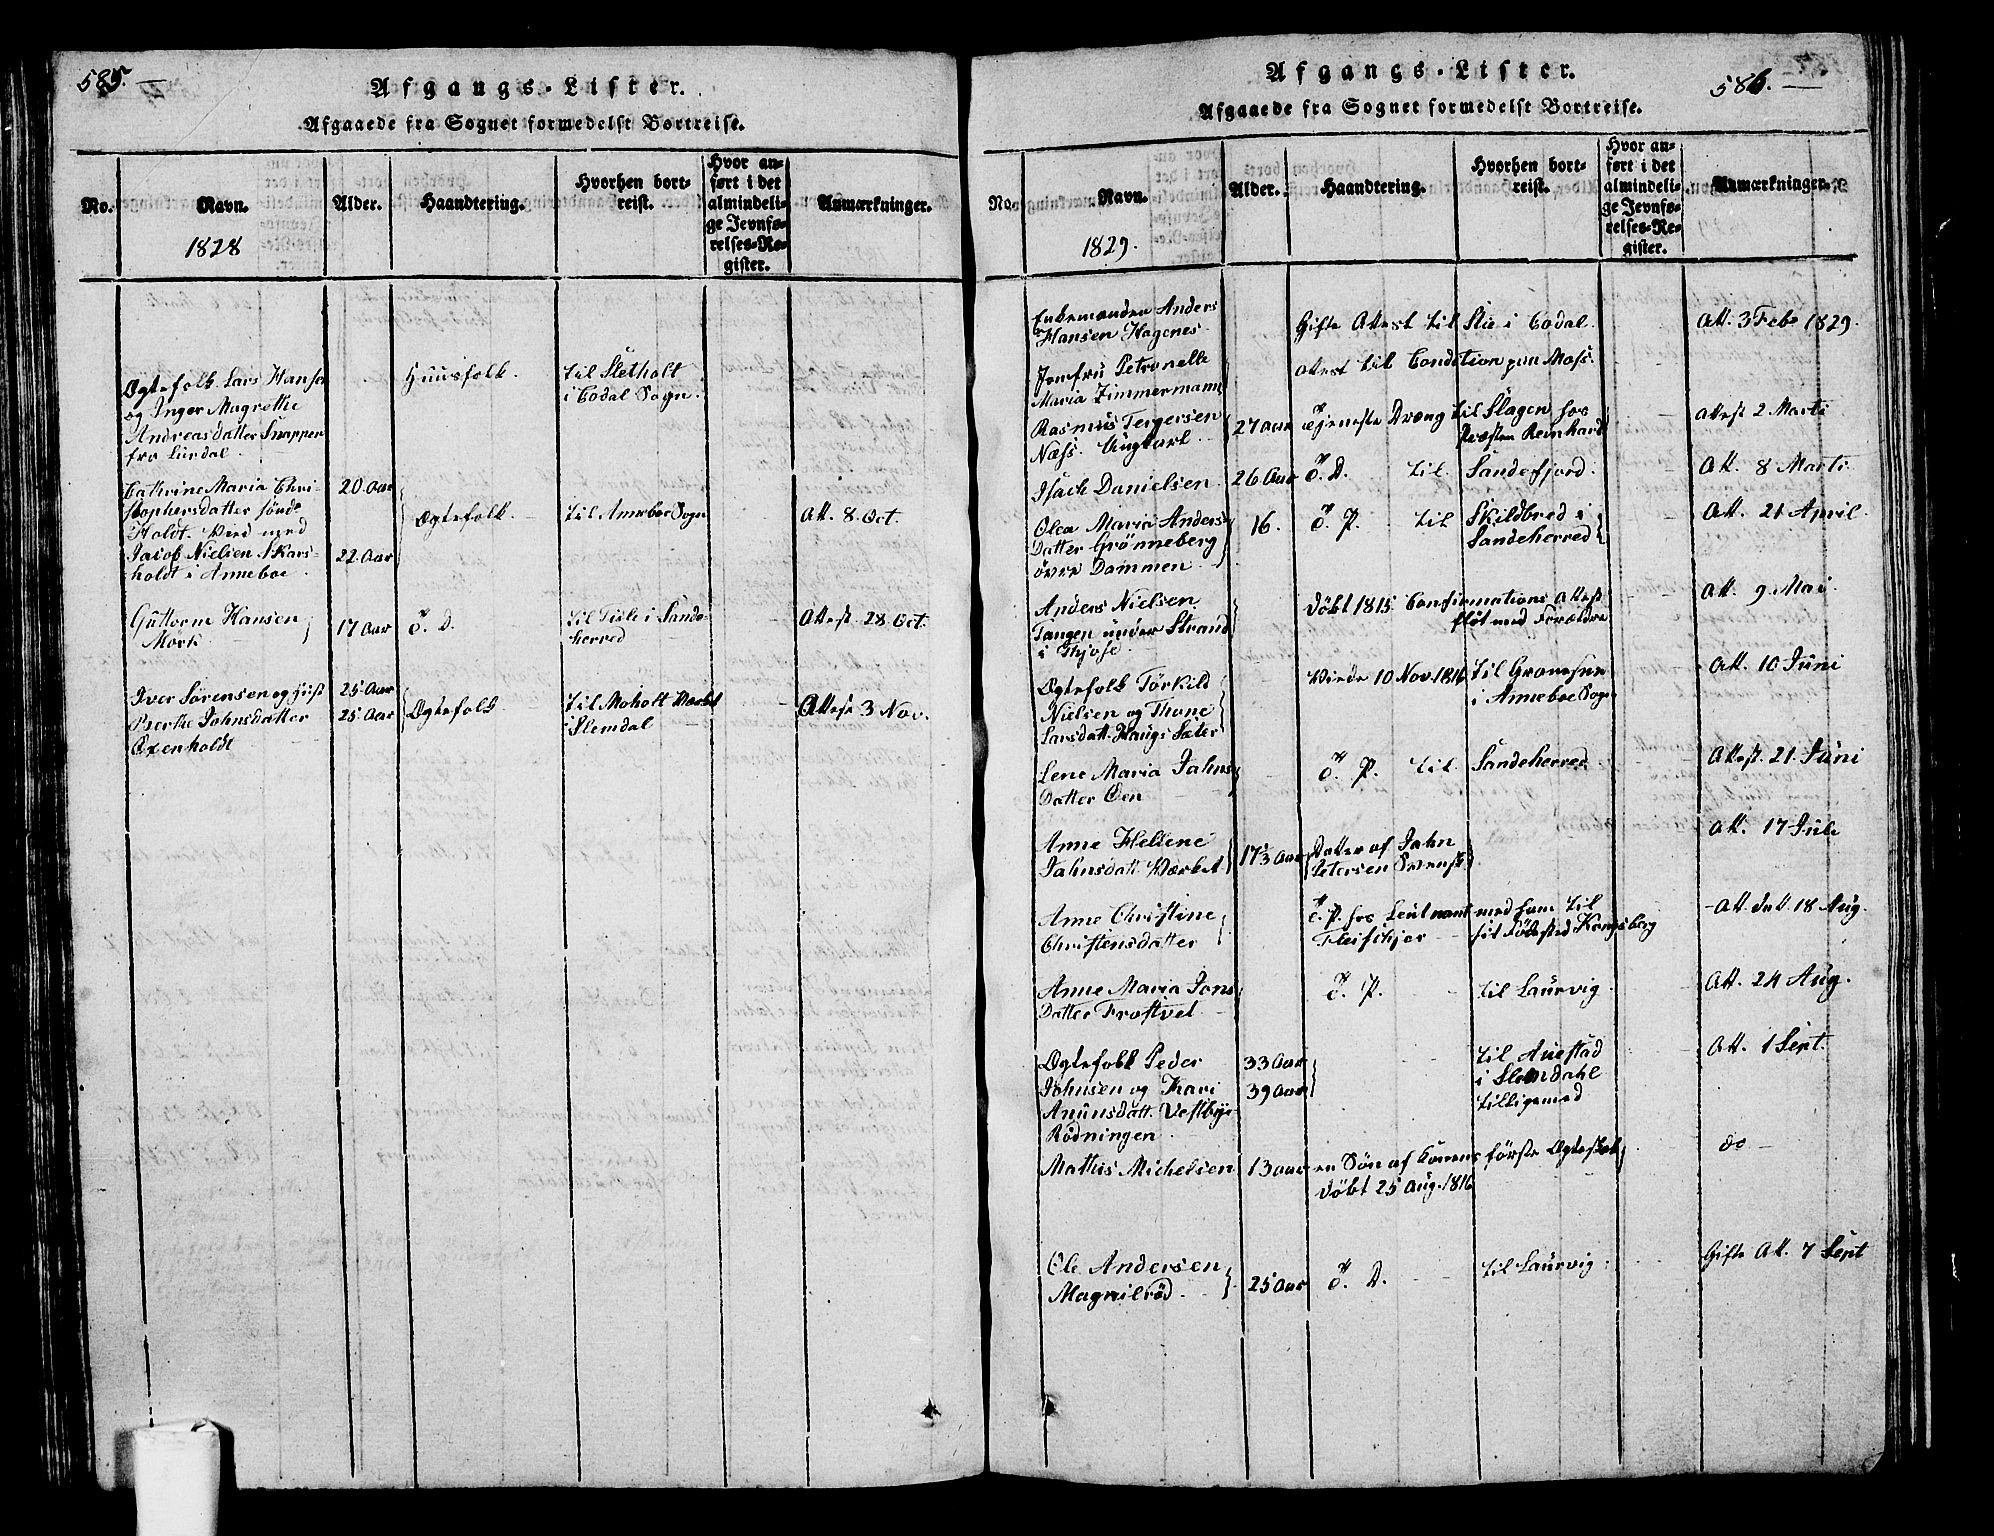 585.
Afgangs-Lister.
Afgaaede fra Sognet formedelst Bortreise.
No.
Navn.
1828
Alder.
Haandtering.
Hvorhen bort-
reist.
Hvor an-
ført i det
almindeli-
ge Jevnfø-
relses-Re-
gister.
Anmærkninger.
Ægtefolk Lars Hansen
og Inger Magrethe
Andreasdatter Snappen
fra Lurdal.
Huusfolk.
til Sletholt
i Hedal Sogn.
Cathrine Maria Chri-
stophersdatter
Holdt. Viet med
Jacob Nielsen Skars-
holdt i Anneboe.
20 Aar
22 Aar
Ægtefolk.
til Anneboe Sogn
Att. 8. Oct.
Guttorm Hansen
Mørk
17 Aar
T. D.
til i Sande-
herred
Attest 28 Oct.
Iver Sørensen og
Berthe Johnsdatter
Oxenholdt
25 Aar
25 Aar
Ægtefolk
til Moholt Værket
i Slemdal
Attest 3 Nov.
586.
Afgangs-Lister.
Afgaaede fra Sognet formedelst Bortreise.
No.
Navn.
1829.
Alder.
Haandtering.
Hvorhen bort-
reist.
Hvor an-
ført i det
almindeli-
ge Jevnfø-
relses-Re-
gister.
Anmærkninger.
Enkemanden Anders
Hansen Hagenes
Gifte Attest til i Hedal.
Att. 3 Feb 1829.
Jomfru Petronelle
Maria Zimmermann
Attest til Condition paa Moss.
Rasmus Tergersen
Næss. Ungkarl
27 Aar
Tjeneste Dreng til Slagen hos
Præsten Reinhard
Attest 2 Marti
Isach Danielsen
26 Aar
T. D. til Sandefjord.
Att. 8 Marti
Olea Maria Anders
Datter Grønneberg
øvre Dammen
16.
T. P. til
Skildbred i
Sandeherred
Att. 21 April.
Anders Nielsen
Tangen under Strand
i Thjose
døbt 1815 Confirmations Attest
fløt med Forældre
Att. 9 Mai.
Ægtefolk Törkild
Nielsen og Thone
Larsdatt. Haugs Sæter
Viede 10 Nov. 1816 til
i Anneboe Sogn
Att. 10 Juni
Lene Maria Jahns
Datter Øen
T. P. til Sandeherred
Attest. 21. Juni
Anne Hellene
Jahnsdatt. Værket
17 3/ Aar
Datter af Jahn
Petersen Svensk
Att. 17 Juli
Anne Christine
Christensdatter
T. P. hos Leutnant med ham til
Fleischer sit Fødested Kongsberg
Att. dat. 18 Aug.
Anne Maria Jons
Datter Frostvet
T. P. til Laurvig
Att. 24 Aug.
Ægtefolk Peder
Johnsen og Kari
Anunsdatt. Vestbye
Rødningen
33 Aar
39 Aar
til Auestad
i Slemdahl
tilligemed
Att. 1 Sept.
Mathis Michelsen
13 aar
en Søn af Konens første Ægteskab
døbt 25 Aug. 1816
do
Ole Andersen
Magnilrød
25 Aar
T. D.
til Laurvig
Gifte Att. 7 Sept